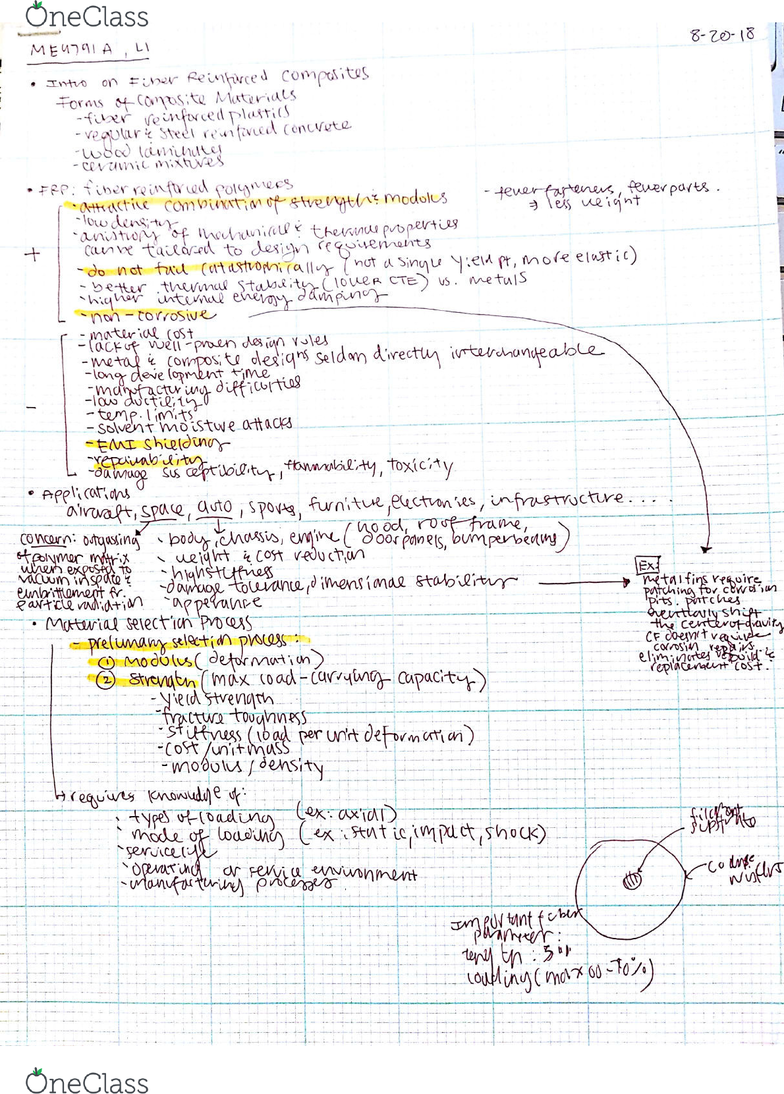 OneClass
ME4791A, L1
8-20-18
• Intro on Fiber Reinforced Composites
Forms of Composite Materials
- fiber reinforced plastics
- regular & steel reinforced concrete
- wood laminates
- ceramic mixtures
• FRP: fiber reinforced polymers
- attractive combination of strength & modulus
- fewer fasteners, fewer parts.
→ less weight
- low density
- anistropy of mechanical & thermal properties
can be tailored to design requirements
+
- do not fail catastrophically (not a single yield pt, more elastic)
- better thermal stability (lower CTE) vs. metals
- higher internal energy damping
- non-corrosive
- material cost
- lack of well-proven design rules
- metal & composite designs seldom directly interchangeable
- long development time
- manufacturing difficulties
- low ductility
-
- temp. limits
- solvent moisture attacks
- EMI shielding
- repairability
- damage susceptibility, flammability, toxicity
• Applications
aircraft, space, auto, sports, furniture, electronics, infrastructure....
concern: outgassing
of polymer matrix
when exposed to
vacuum in space &
embrittlement fr.
particle radiation
• body, chassis, engine (hood, roof frame,
door panels, bumper beams)
• weight & cost reduction
• high stiffness
• damage tolerance, dimensional stability
• apperance
Ex:
metal fins require
patching for corrosion
pits. patches
eventually shift
the center of gravity
CF doesn't require
corrosin repairs
eliminates rebuild &
replacement cost.
• Material selection Process
- prelimary selection process:
① Modulus (deformation)
② Strength (max load-carrying capacity)
- yield strength
- fracture toughness
- stiffness (load per unit deformation)
- cost/unit mass
- modulus/density
↳ requires knowledge of:
• types of loading (ex: axial)
• mode of loading (ex: static, impact, shock)
• service life
• operating or service environment
• manufacturing processes.
filament
substrate
Important fiber
parameter:
length:
loading (max 60-70%)
OneClass